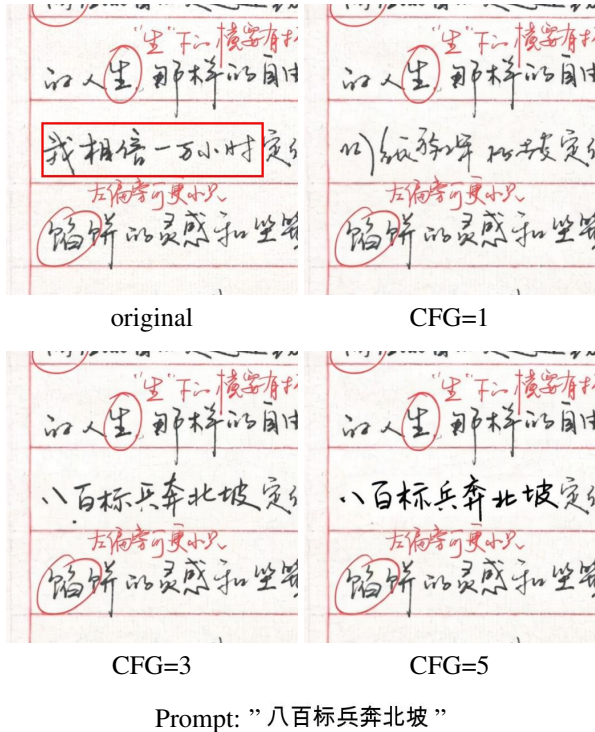 "生"下一横要有
的人生那样的自由
我相信一万小时定
左偏旁可更小些
馅饼的灵感和坐等
original
"生"下一横要有
的人生那样的自由
定
左偏旁可更小些
馅饼的灵感和坐等
CFG=1
"生"下一横要有
的人生那样的自由
八百标兵奔北坡定
左偏旁可更小些
馅饼的灵感和坐等
CFG=3
"生"下一横要有
的人生那样的自由
八百标兵奔北坡定
左偏旁可更小些
馅饼的灵感和坐等
CFG=5
Prompt: ” 八百标兵奔北坡 ”